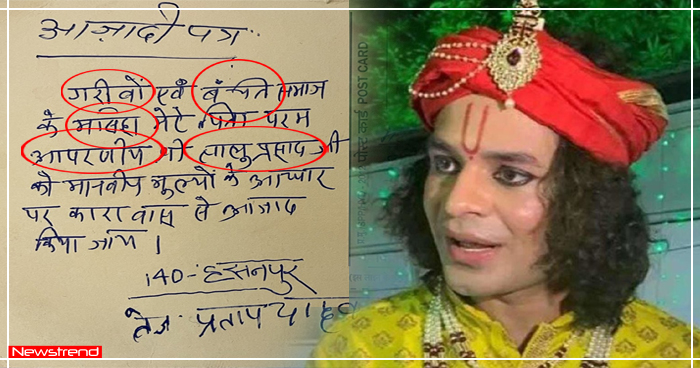 आज़ादी पत्र
गरीवों एवं बंचति समाज
के मसिहा मेरे पिता परम
आपरणीय श्री लालु प्रसाद जी
को मानवीय मूल्यों के आधार
पर कारावास से आजाद
किया जाय ।
140-हसनपुर
तेज प्रताप यादव
पोस्ट कार्ड POST CARD
Newstrend